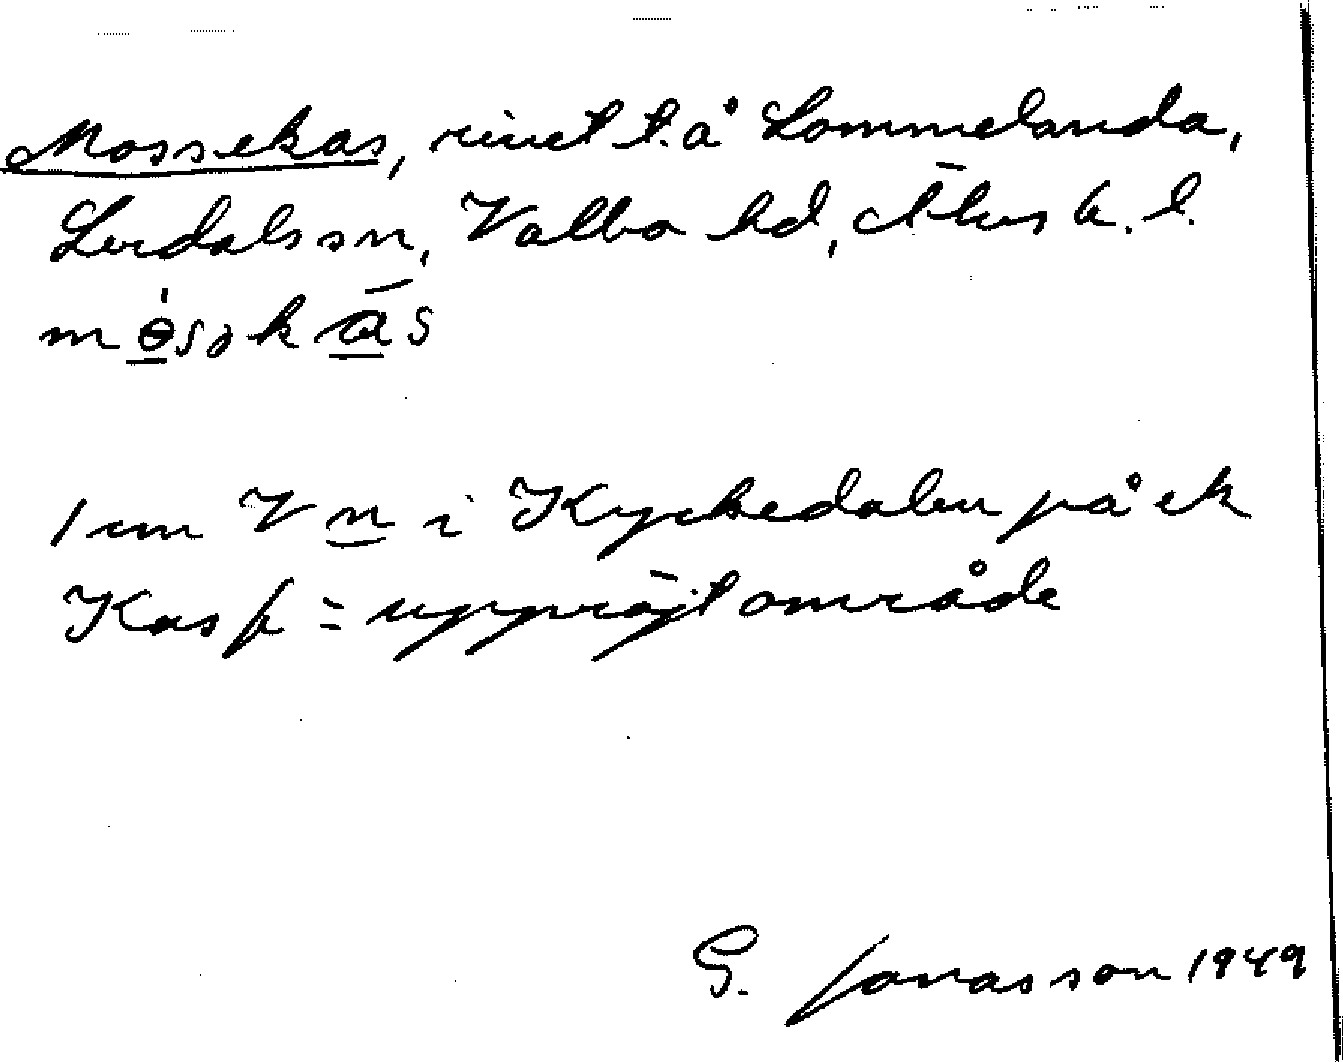 Mossekas, rivet t. å Lommelanda,
Lerdals sn, Valbo hd, Älvsb. l.
mösək ās
1 um V n i Kyckedalen på ek
Kas f = uppröjt område
G. Jonasson 1949